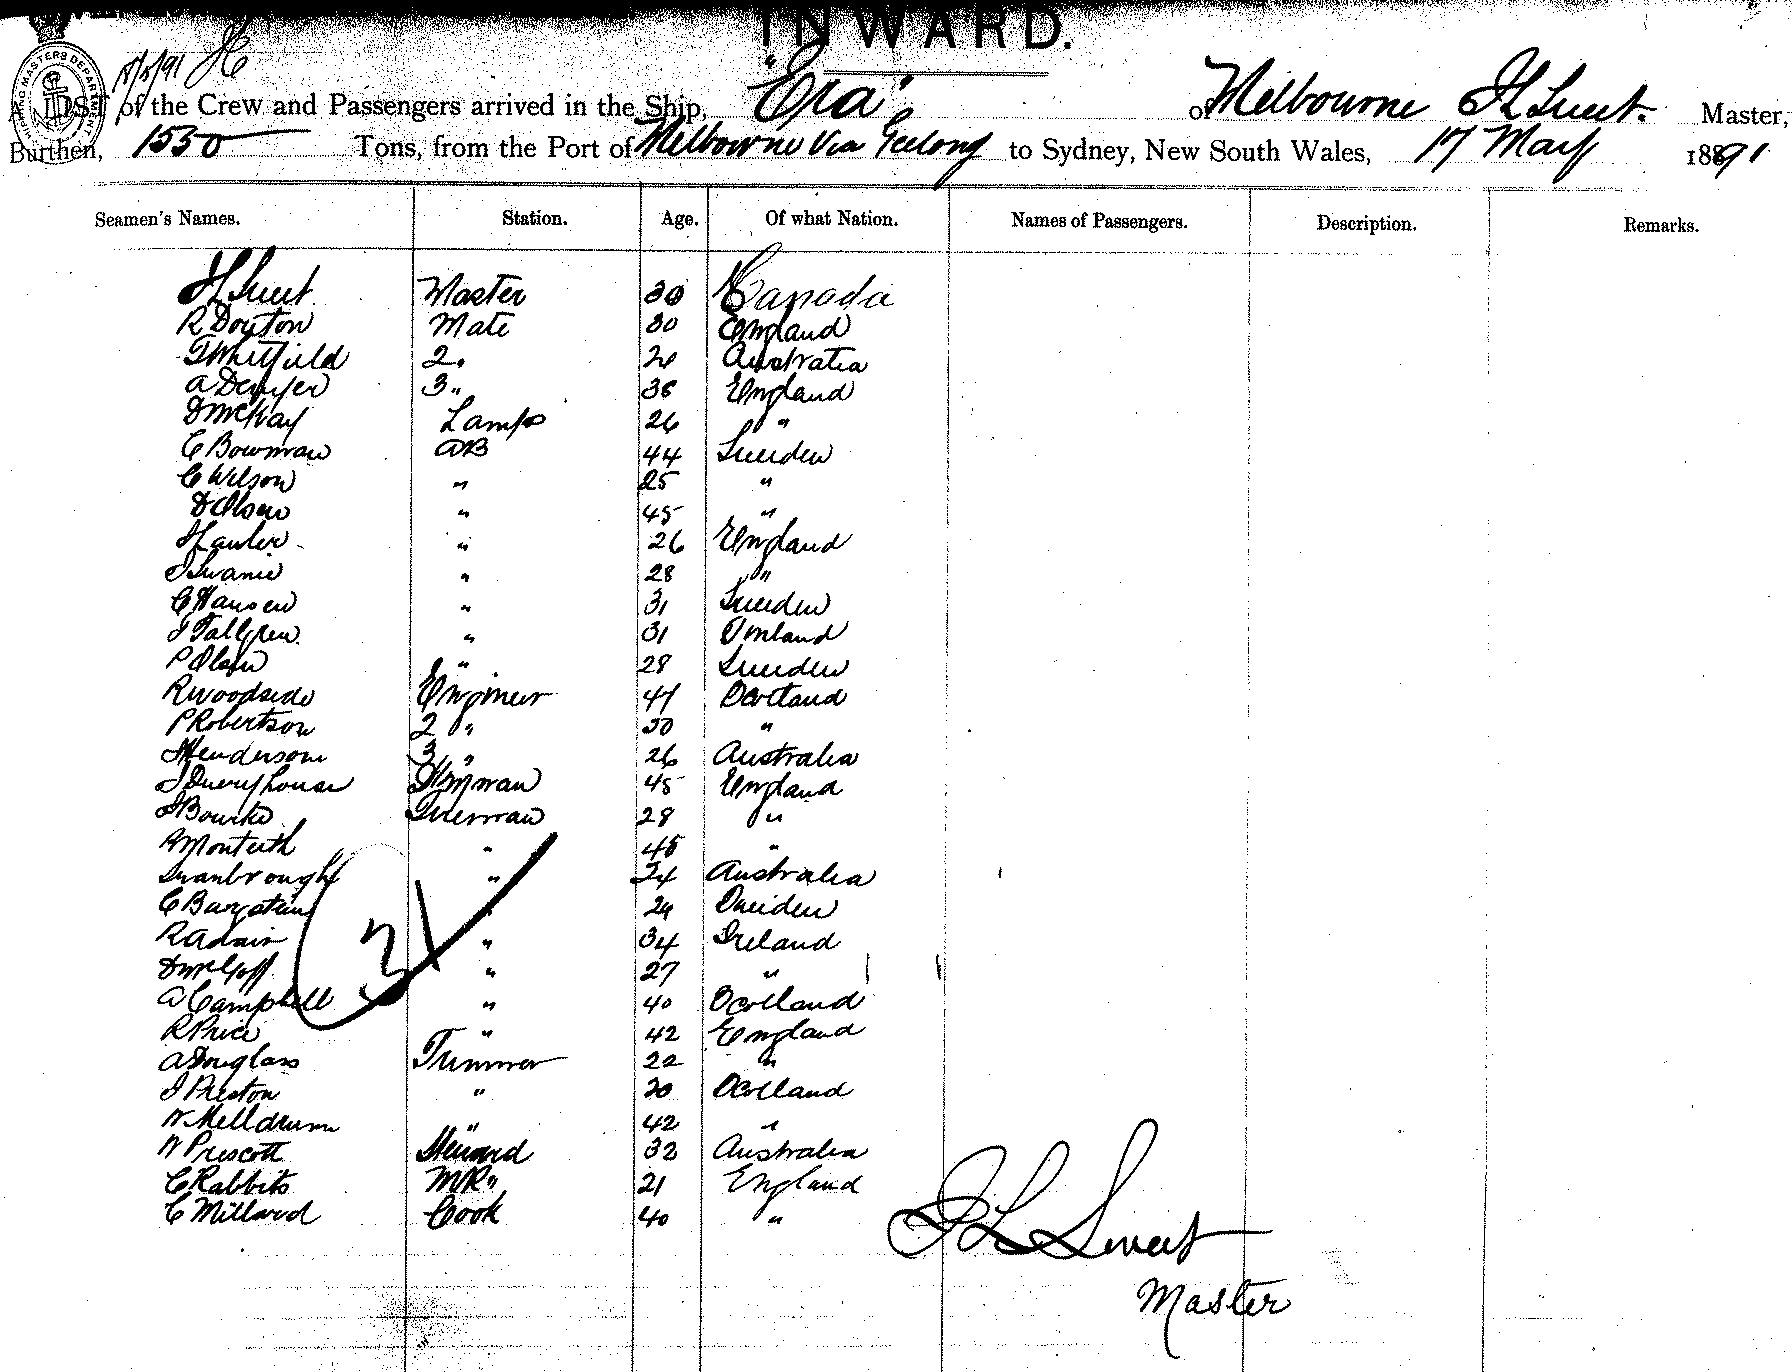 INWARD.
18/5/91
A LIST of the Crew and Passengers arrived in the Ship, "Era" of Melbourne Master,
Burthen, 1550 Tons, from the Port of Melbourne Via Geelong to Sydney, New South Wales, 17 May 1891
Seamen's Names. Station. Age. Of what Nation. Names of Passengers. Description. Remarks.
Master 30 Canada
R Doyton Mate 30 England
T Whitfield 2 " 26 Australia
A Dwyer 3 " 36 England
D McKay Lamps 26 "
C Bowman AB 44 Sweden
C Wilson " 25 "
D Olsen " 45 "
" 26 England
" 28 "
C Hansen " 31 Sweden
J Tallgren " 31 Finland
P Olsen " 28 Sweden
R Woodside Engineer 41 Scotland
P Robertson 2 " 30 "
Henderson 3 " 26 Australia
45 England
J Bourke Fireman 28 "
R Monteith " 45 "
" 24 Australia
C Bargstein " 29 Sweden
R Adair " 34 Ireland
D McGoff " 27 "
A Campbell " 40 Scotland
R Price " 42 England
A Douglass Trimmer 22 "
J Preston " 20 Scotland
W Melldrum " 42 "
W Prescott Steward 32 Australia
C Rabbits M.R. 21 England
C Millard Cook 40 "
31
Master